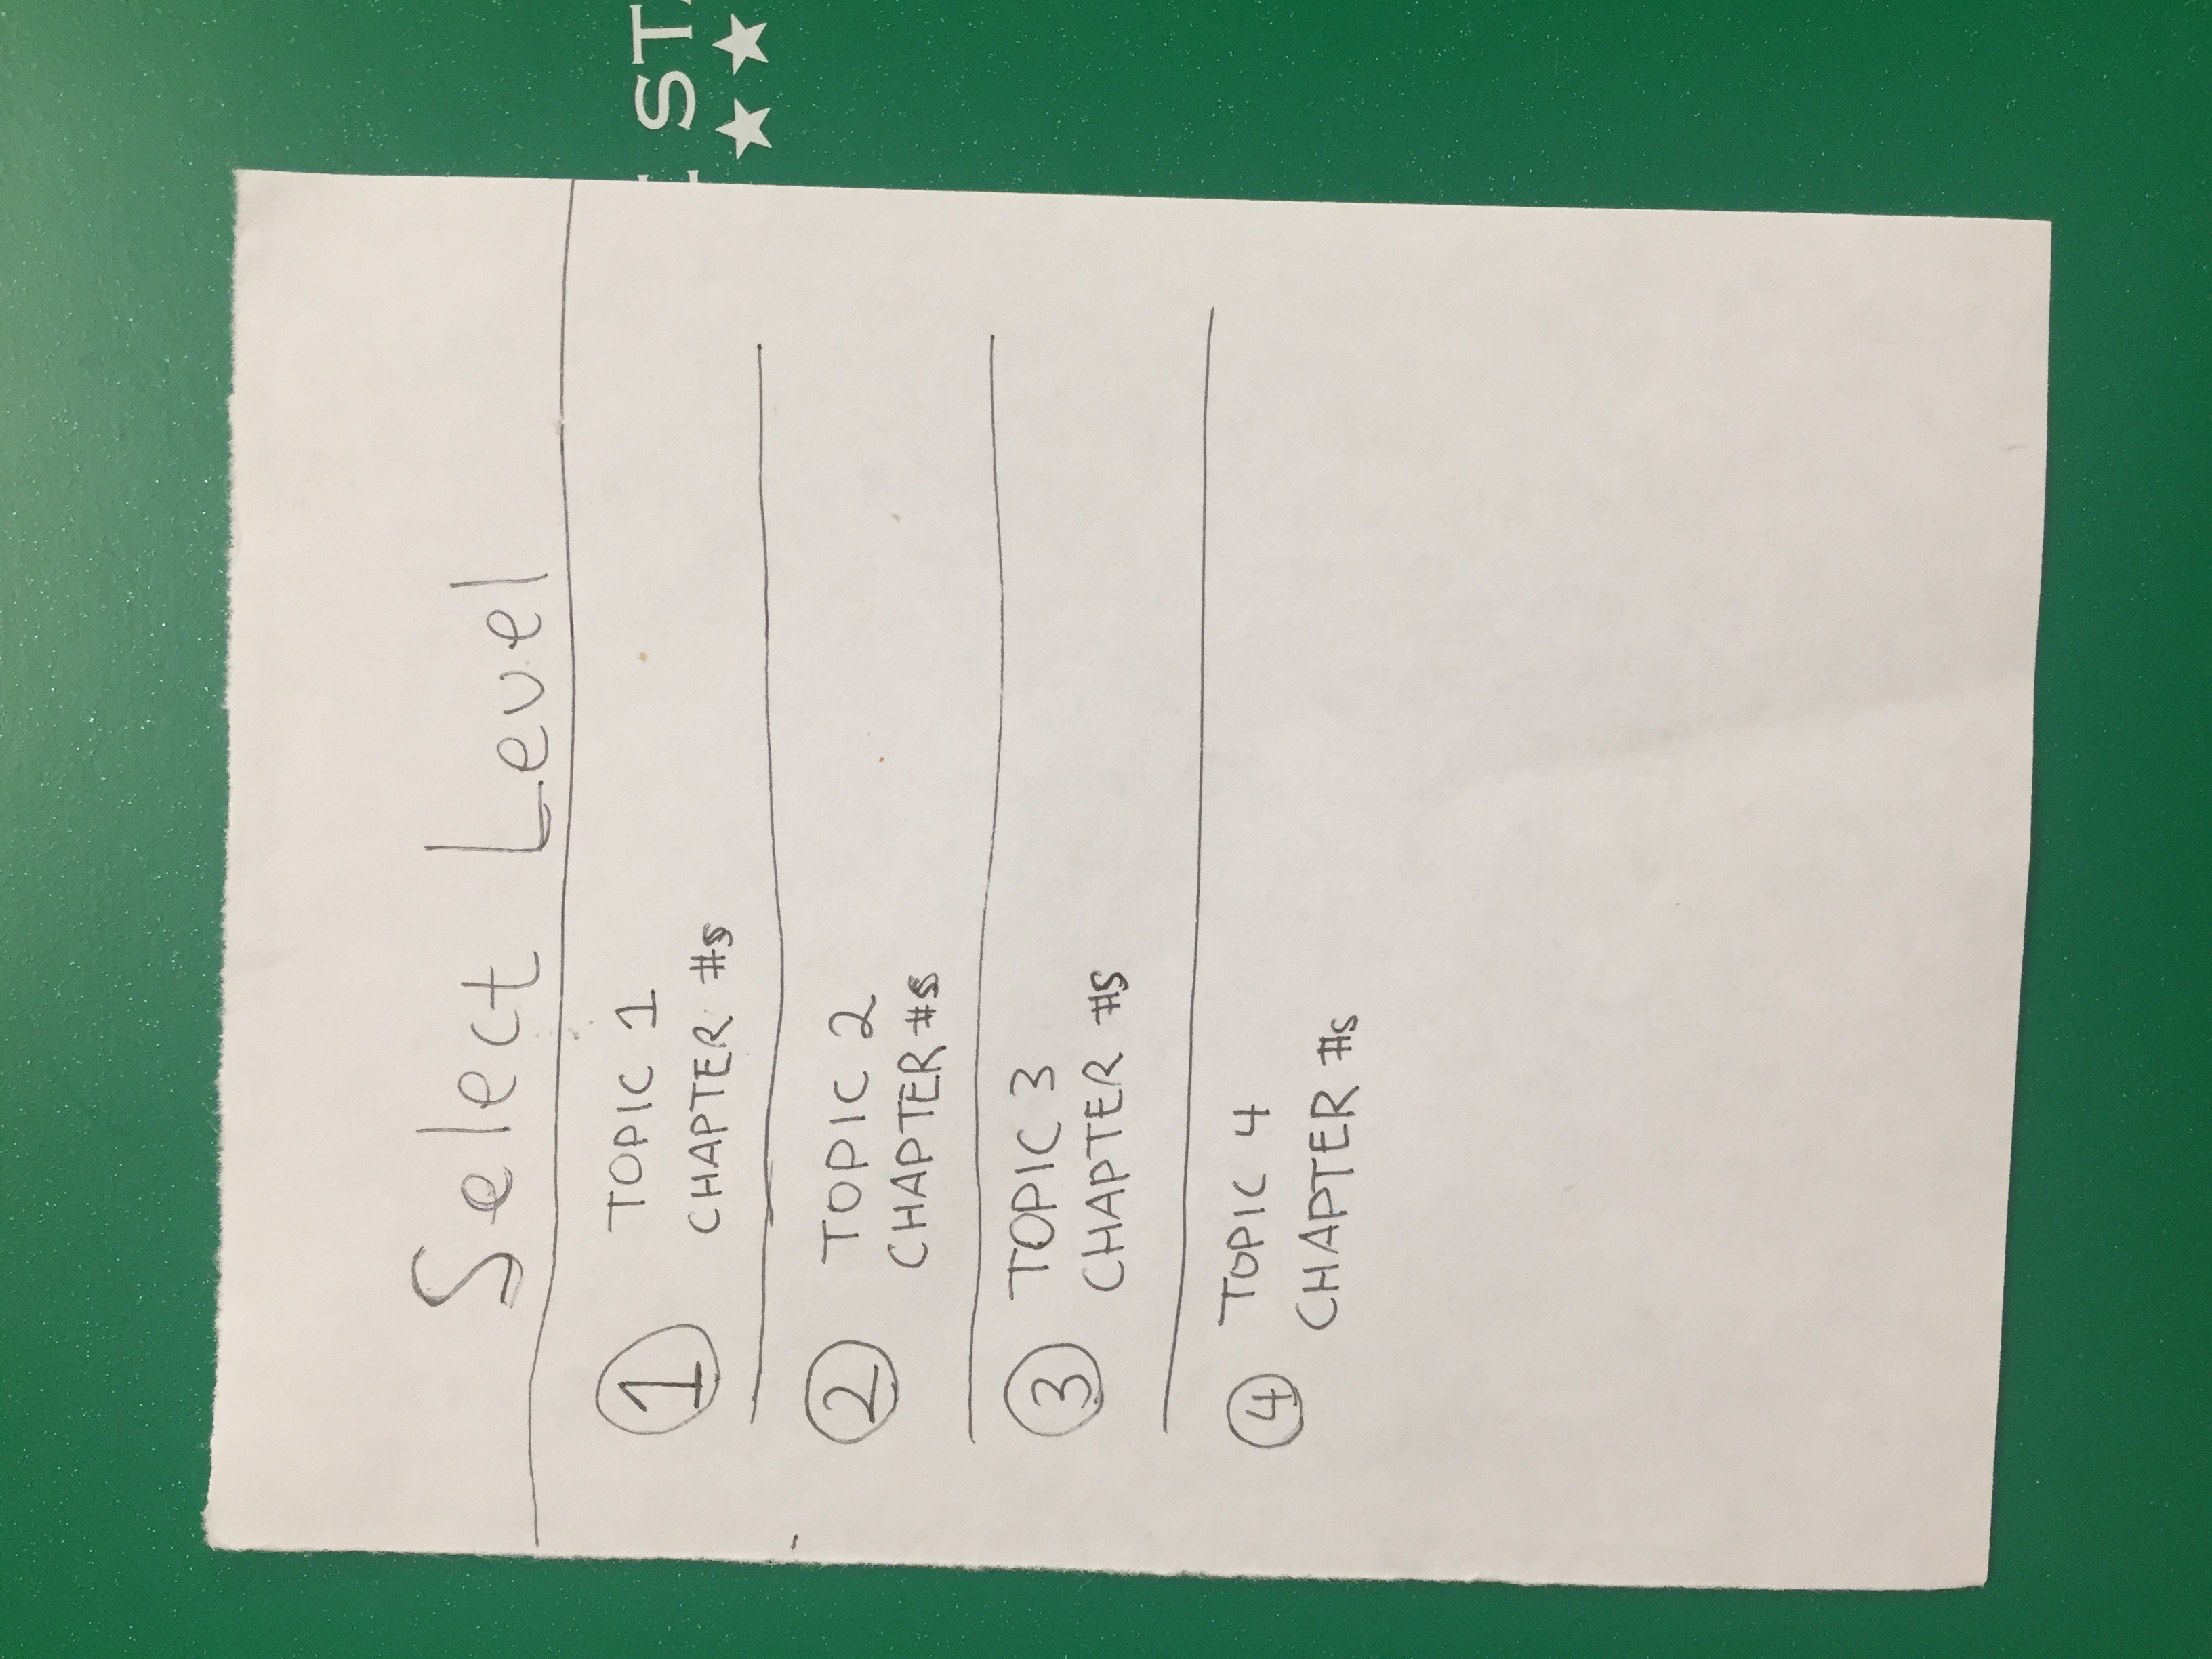 Select Level
1 TOPIC 1
CHAPTER #s
2 TOPIC 2
CHAPTER #s
3 TOPIC 3
CHAPTER #s
4 TOPIC 4
CHAPTER #s